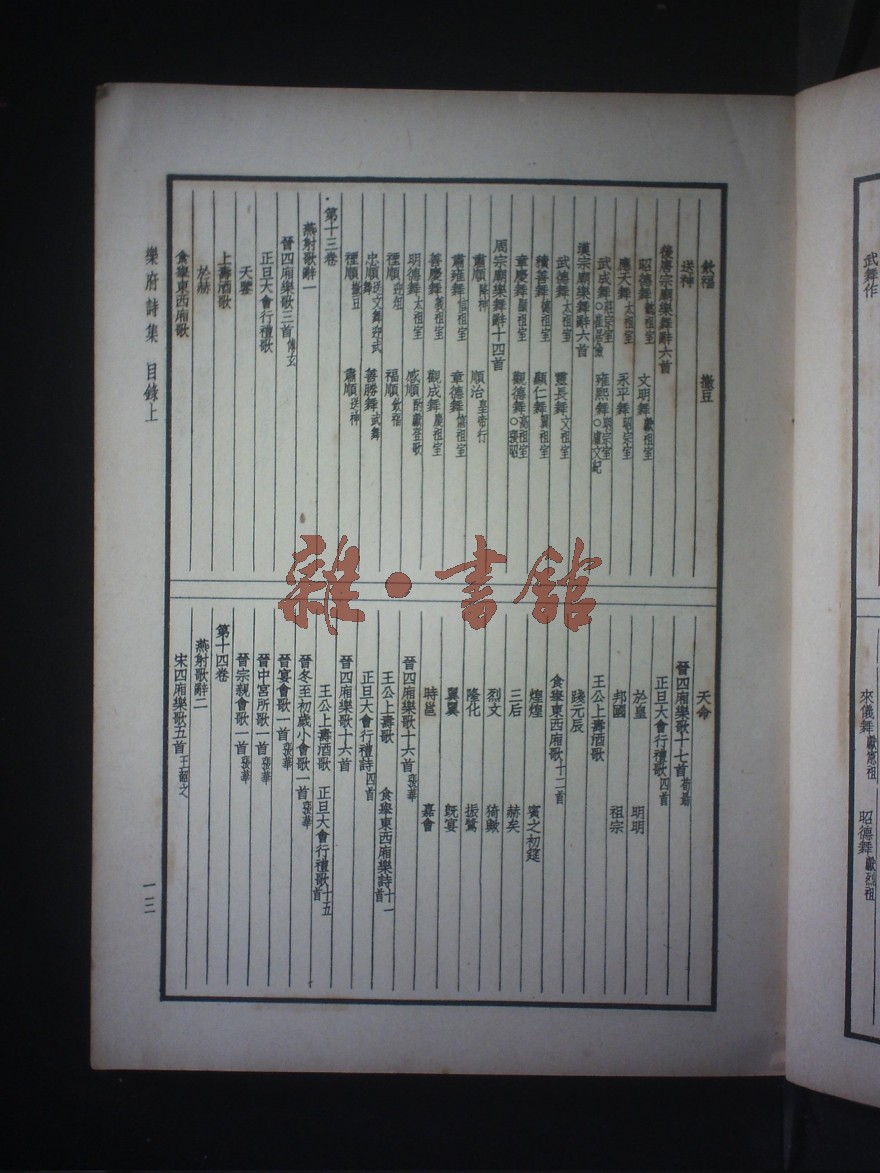 飲福 撤豆
送神
後唐宗廟樂舞辭六首
昭德舞獻祖室 文明舞獻祖室
應天舞太祖室 永平舞昭宗室
武成舞莊宗室○崔居儉 雍熙舞明宗室○盧文紀
漢宗廟樂舞辭六首
武德舞太祖室 靈長舞文祖室
積善舞德祖室 顯仁舞翼祖室
章慶舞顯祖室 觀德舞高祖室○張昭
周宗廟樂舞辭十四首
肅順降神 順治皇帝行
肅雍舞信祖室 章德舞僖祖室
善慶舞義祖室 觀成舞慶祖室
明德舞太祖室 感順酌獻登歌
禋順迎俎 福順飲福
忠順送文舞迎武舞 善勝舞武舞
禋順撤豆 肅順送神
第十三卷
燕射歌辭一
晉四廂樂歌三首傅玄
正旦大會行禮歌
天鑒
上壽酒歌
於赫
食舉東西廂歌
天命
晉四廂樂歌十七首荀勗
正旦大會行禮歌四首
於皇 明明
邦國 祖宗
王公上壽酒歌
踐元辰
食舉東西廂歌十二首
煌煌 賓之初筵
三后 赫矣
烈文 猗歟
隆化 振鷺
翼翼 既宴
時邕 嘉會
晉四廂樂歌十六首張華
王公上壽歌 食舉東西廂樂詩十一首
正旦大會行禮詩四首
晉四廂樂歌十六首
王公上壽酒歌 正旦大會行禮歌十五首
晉冬至初歲小會歌一首張華
晉宴會歌一首張華
晉中宮所歌一首張華
晉宗親會歌一首張華
第十四卷
燕射歌辭二
宋四廂樂歌五首王韶之
樂府詩集 目錄上 一三
武舞作
來儀舞獻懿祖 昭德舞獻烈祖
雜·書館